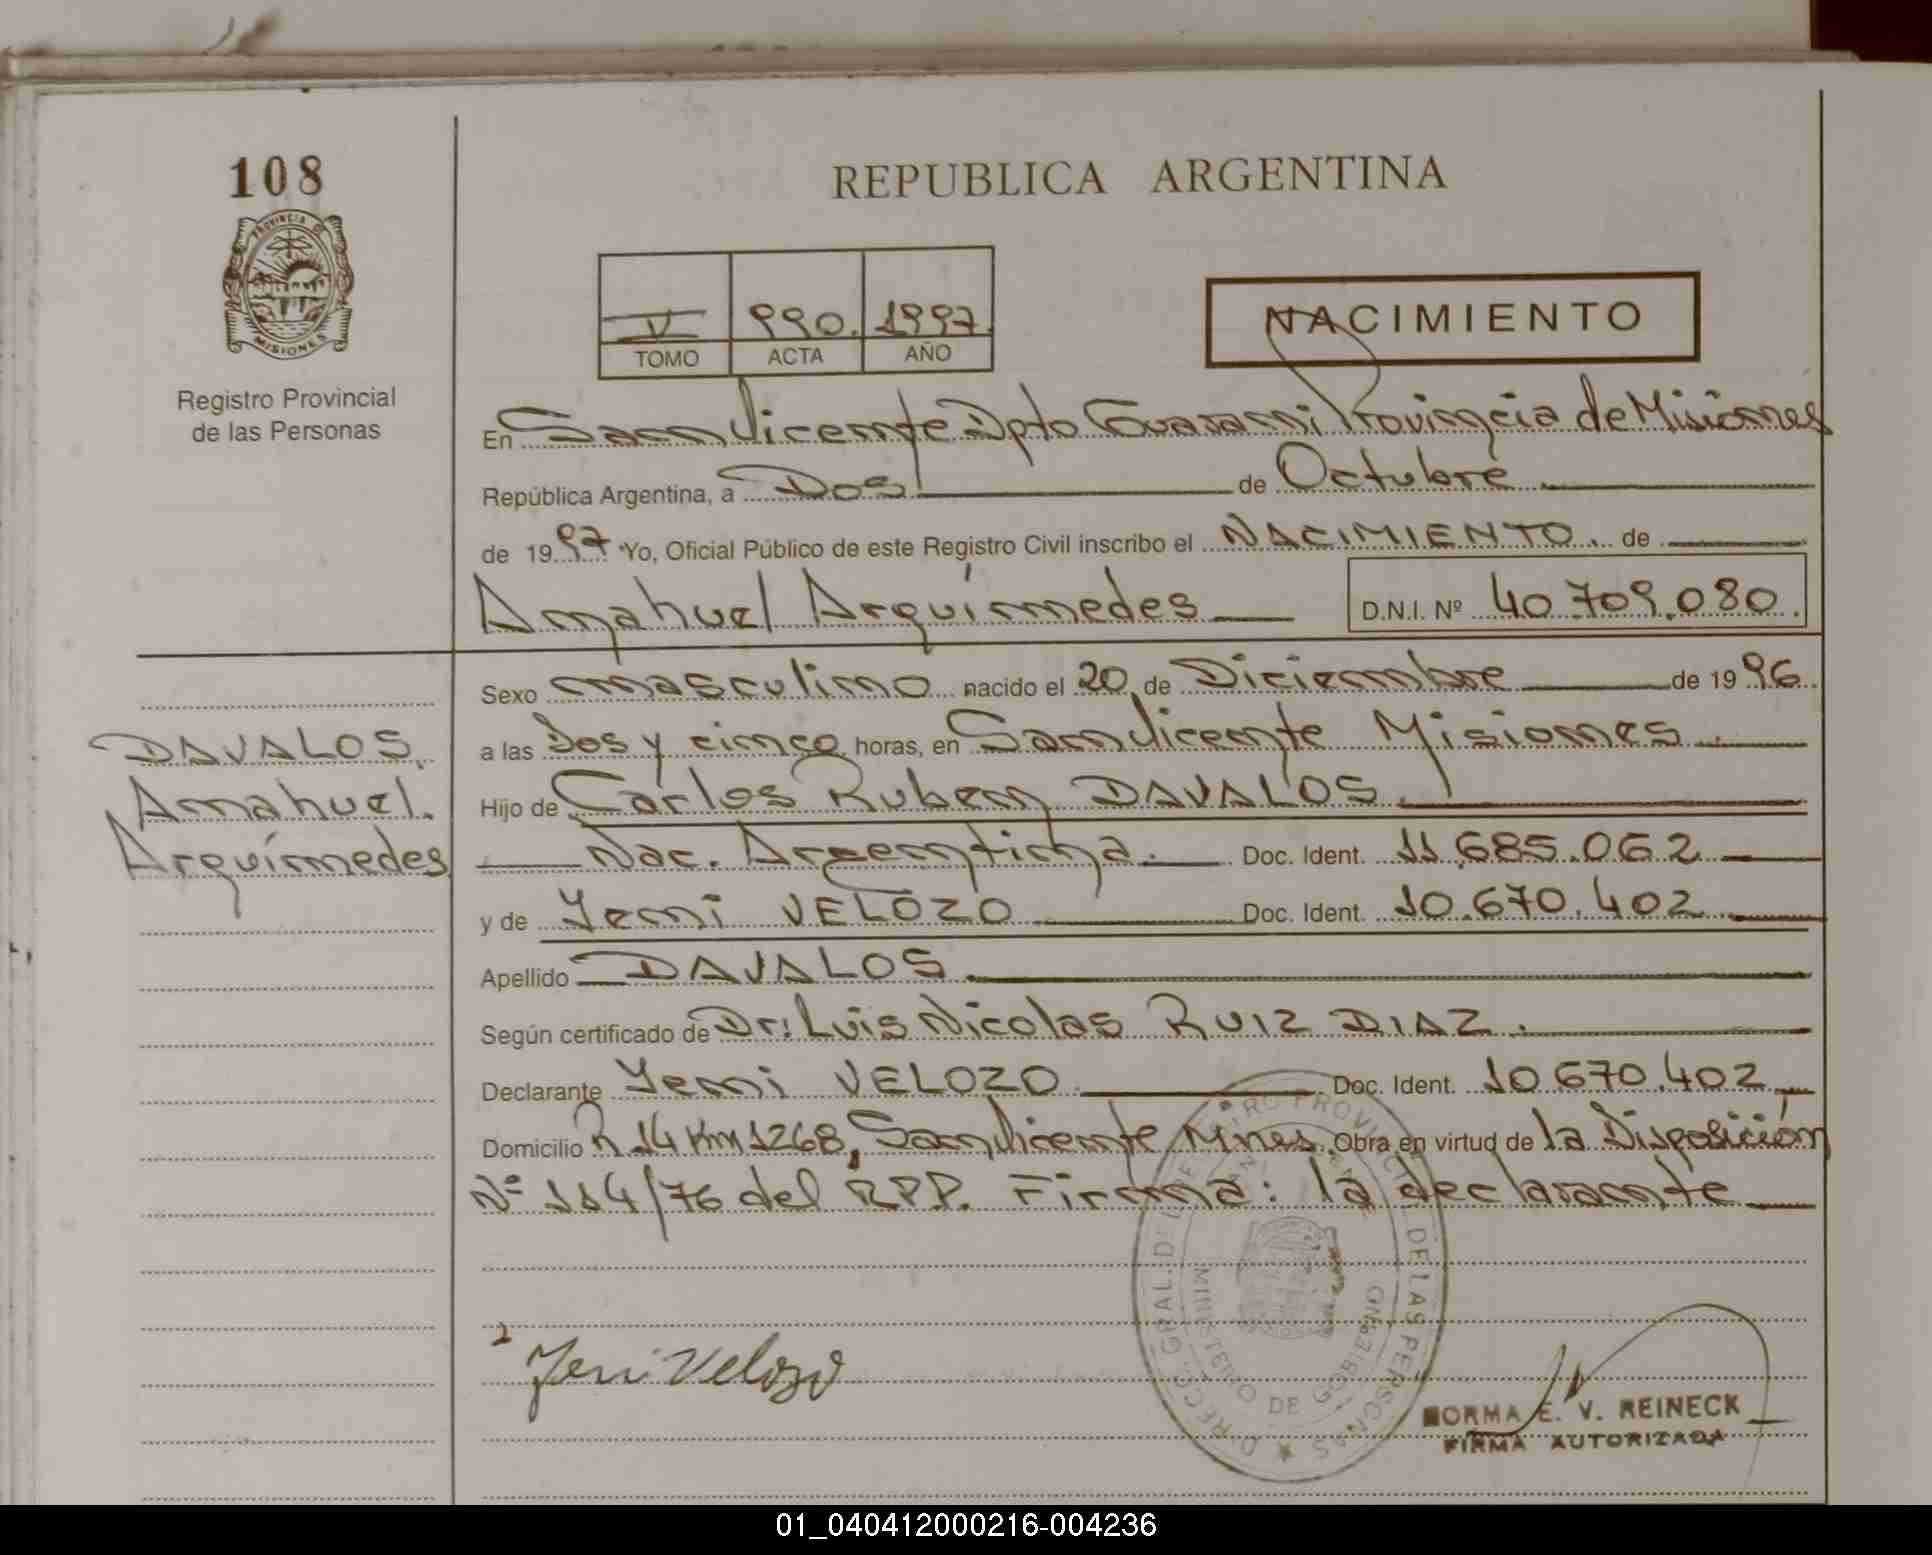 108
REPUBLICA ARGENTINA
PROVINCIA DE
MISIONES
Registro Provincial
de las Personas
V 990. 1997.
TOMO ACTA AÑO
NACIMIENTO
En San Vicente Dpto Guarani Provincia de Misiones
República Argentina, a Dos de Octubre
de 1997 Yo, Oficial Público de este Registro Civil inscribo el NACIMIENTO. de
Amahuel Arquímedes D.N.I. Nº 40.709.080.
Sexo masculino nacido el 20 de Diciembre de 1996
a las Dos y cinco horas, en San Vicente Misiones.
Hijo de Carlos Ruben DAVALOS
Nac. Argentina. Doc. Ident. 11.685.062
y de Yeni VELOZO Doc. Ident. 10.670.402
Apellido DAVALOS
Según certificado de Dr: Luis Nicolas RUIZ DIAZ.
Declarante Yeni VELOZO Doc. Ident. 10.670.402
Domicilio R 14 Km 1268, San Vicente Mnes. Obra en virtud de la Disposición
Nº 114/76 del RPP. Firma: la declarante
DAVALOS,
Amahuel.
Arquímedes
Yeni Velozo
DIRECC. GRAL. DEL REGISTRO PROVINCIAL DE LAS PERSONAS
MINISTERIO DE GOBIERNO
NORMA E. V. REINECK
FIRMA AUTORIZADA
01_040412000216-004236